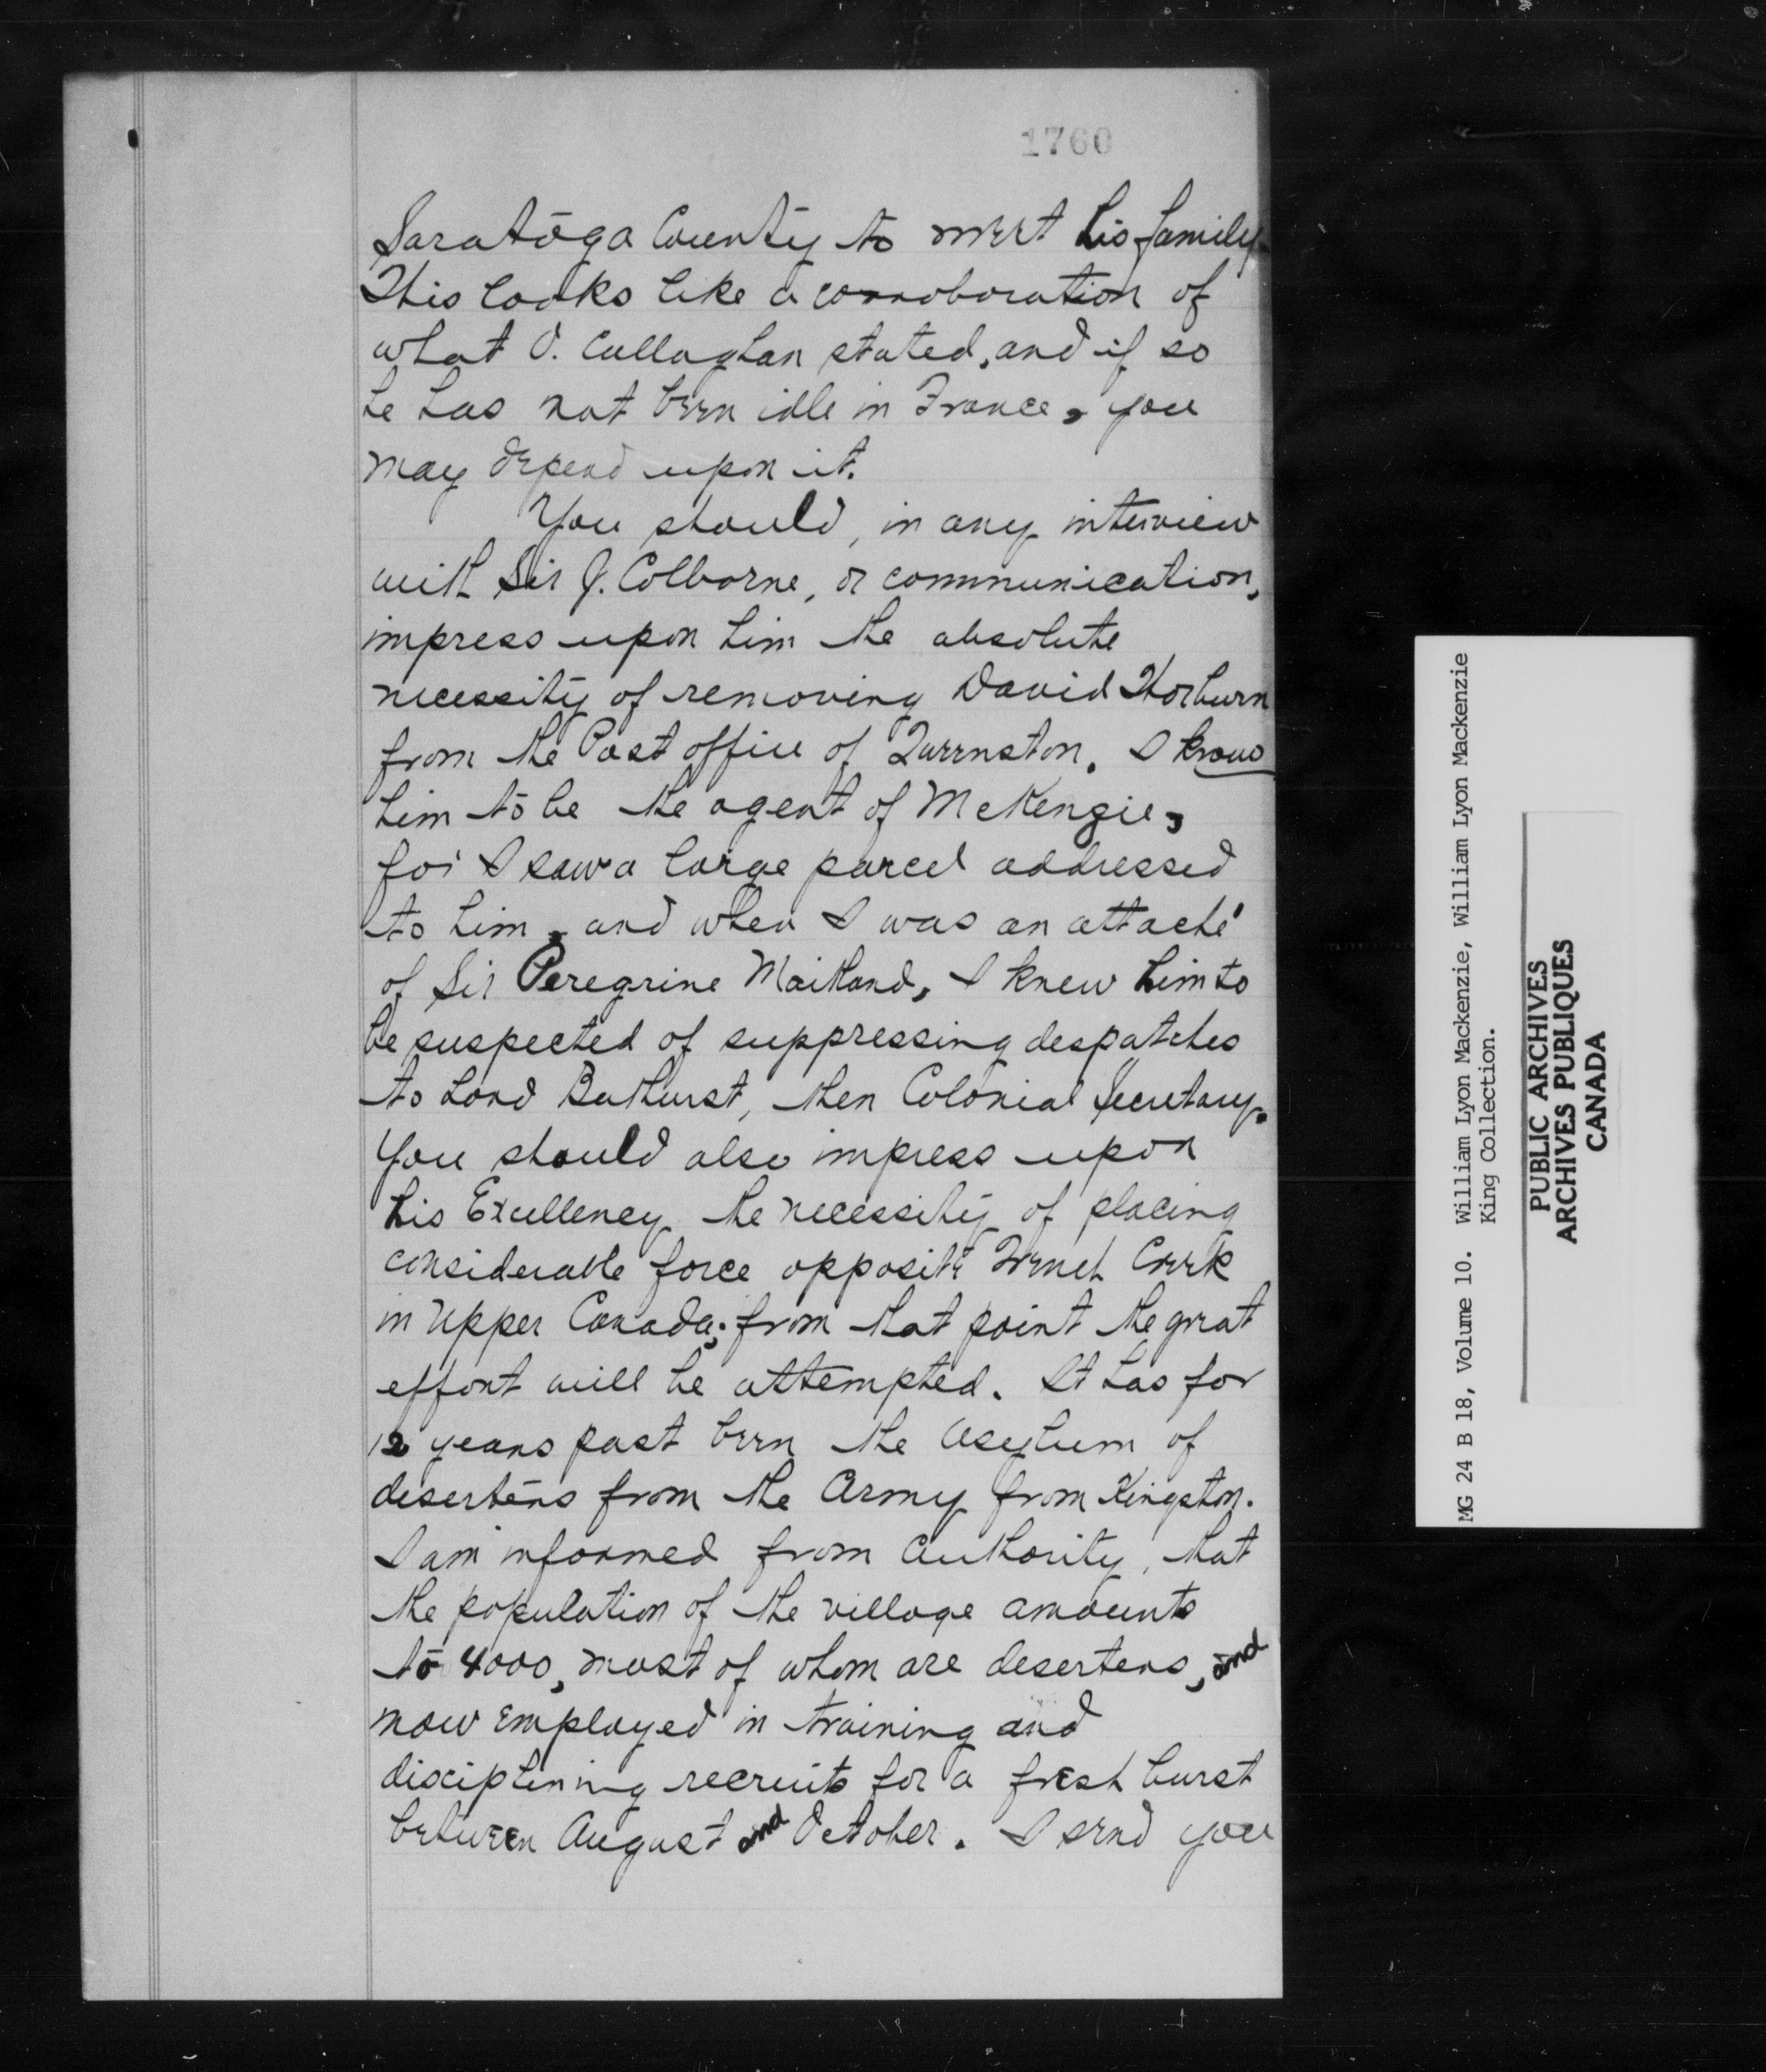 1760
Saratoga County to meet his family.
This looks like a corroboration of
what O. Callaghan stated, and if so
he has not been idle in France, you
may depend upon it.
You should, in any interview
with Sir J. Colborne, or communication,
impress upon him the absolute
necessity of removing David Thorburn
from the Post office of Queenston. I know
him to be the agent of McKenzie,
for I saw a large parcel addressed
to him, and when I was an attaché
of Sir Peregrine Maitland, I knew him to
be suspected of suppressing despatches
to Lord Bathurst, then Colonial Secretary.
You should also impress upon
his Excellency the necessity of placing
considerable force opposite French Creek
in Upper Canada; from that point the great
effort will be attempted. It has for
12 years past been the asylum of
deserters from the Army from Kingston.
I am informed from authority, that
the population of the village amounts
to 4000, most of whom are deserters, and
now employed in training and
disciplining recruits for a fresh burst
between August and October. I send you
MG 24 B 18, Volume 10. William Lyon Mackenzie, William Lyon Mackenzie
King Collection.
PUBLIC ARCHIVES
ARCHIVES PUBLIQUES
CANADA